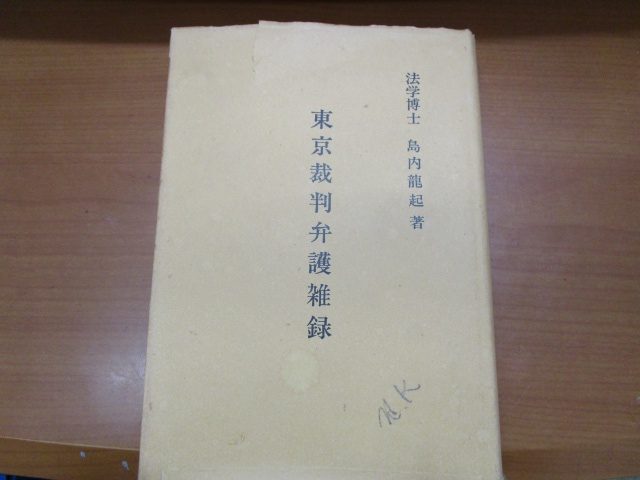 法学博士 島内龍起著
東京裁判弁護雑録
H.K